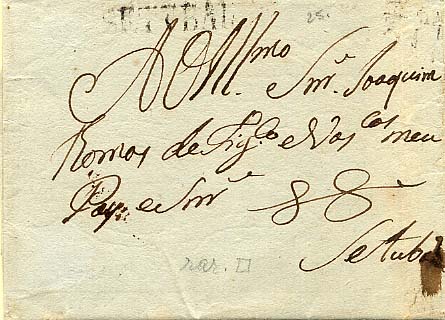 SETUBAL 25.
A O Illmo Snr. Joaquim
Romas de Fig.do e Vas.cos meu
Pay e Snr
Setubal
rar. □